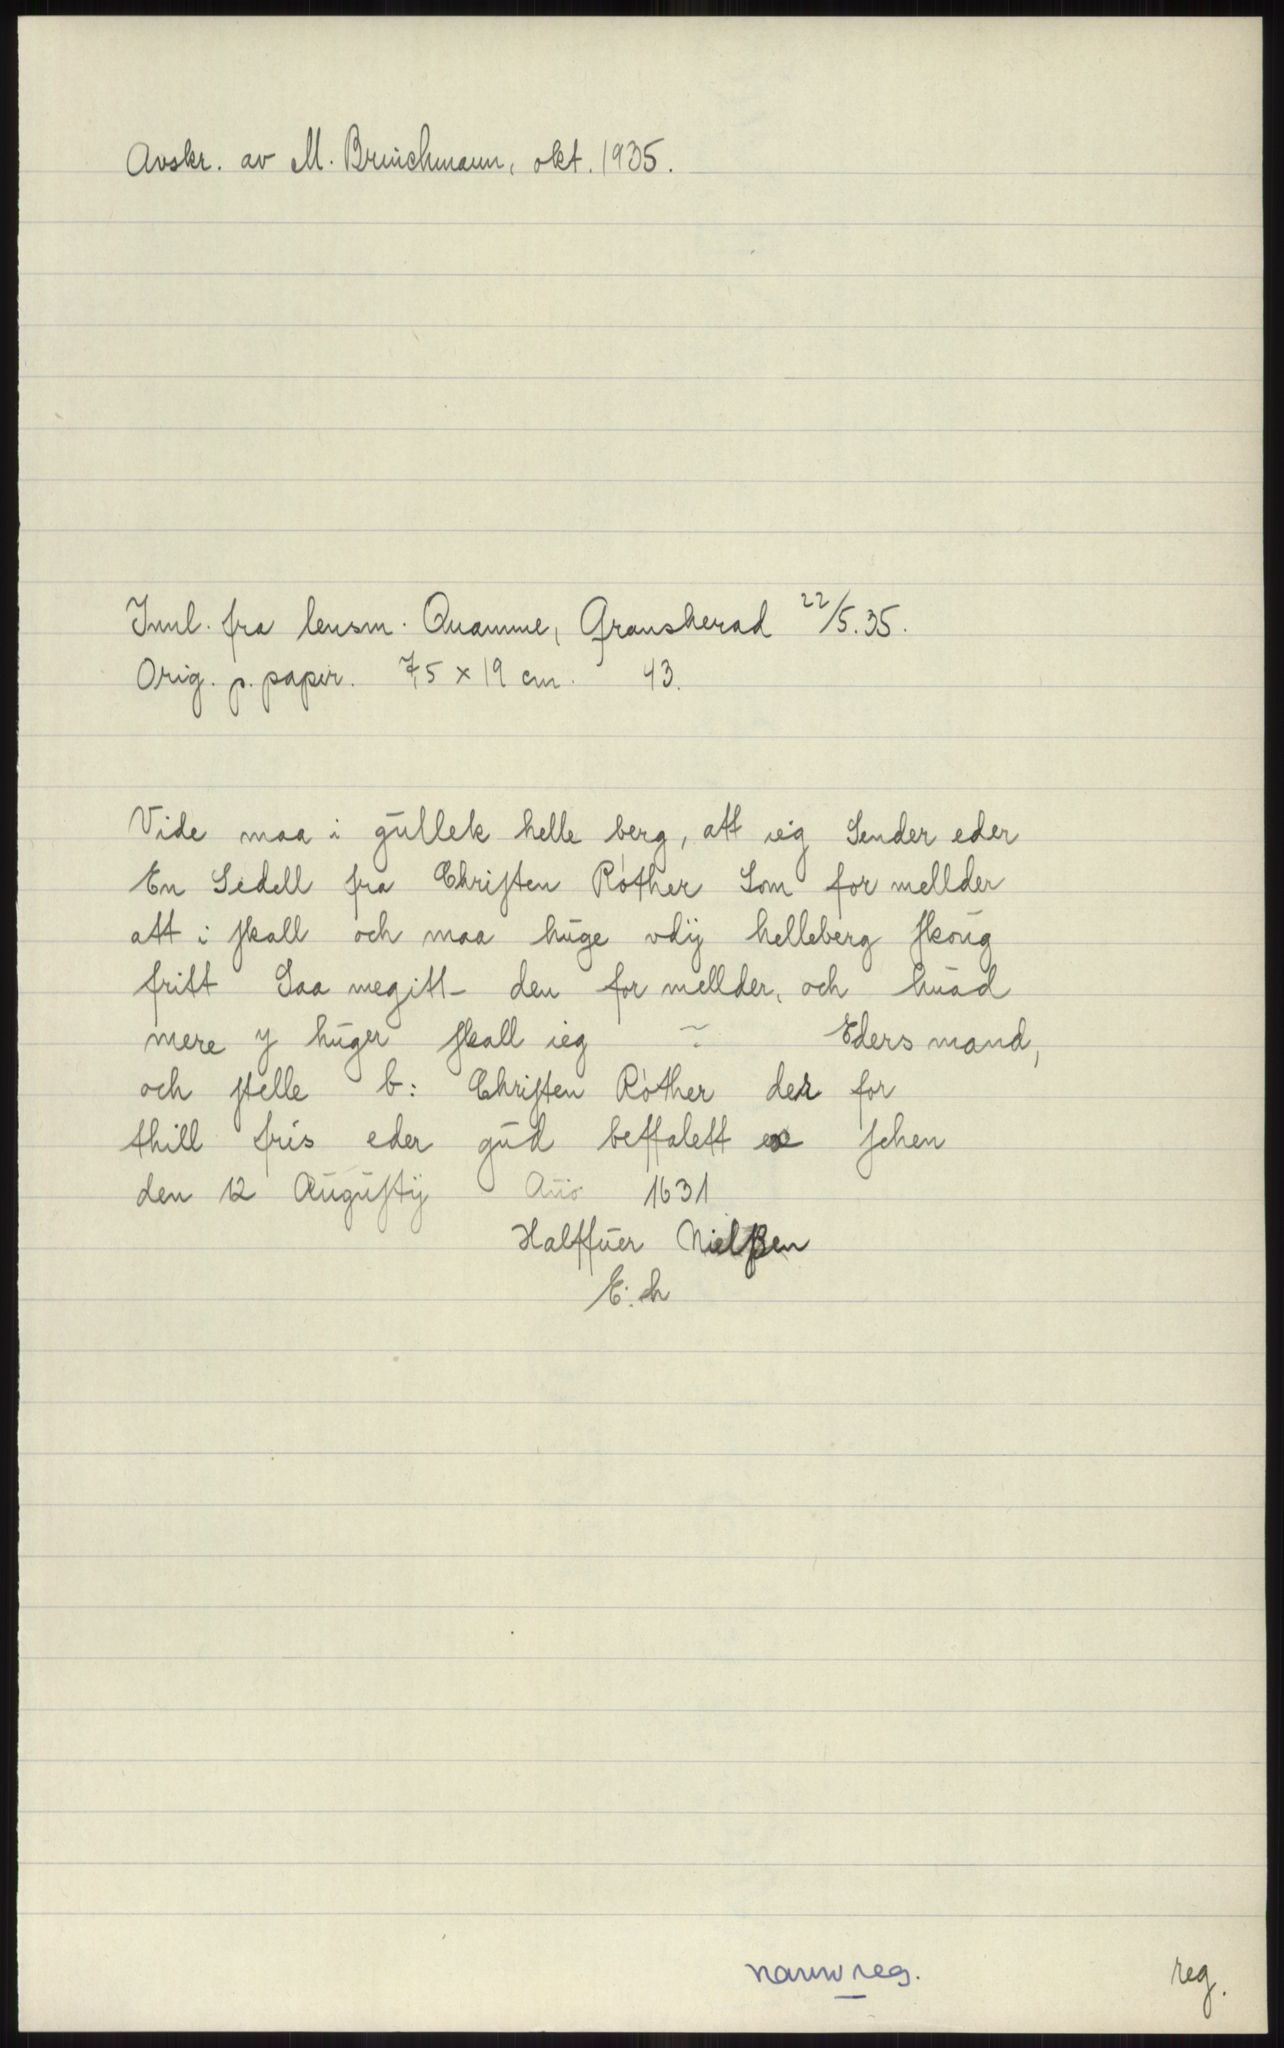 Avskr. av M. Brinchmann, okt. 1935.
Innl. fra lensm. Quamme, Gransherad 22/5.35.
Orig. p. papir. 7,5 x 19 cm. 43.
Vide maa i gullek helle berg, att ieg Sender eder
En Sedell fra Christen Rother Som for mellder
att i skall och maa huge vdij helleberg skoug
fritt Saa megitt den for mellder, och huad
mere y huger skall ieg ~ Eders mand,
och stelle b: Christen Rother der for
thill fris eder gud beffalett schen
den 12 Augustij Ano 1631
Halffuer Nielßen
E: h
navnreg. reg.